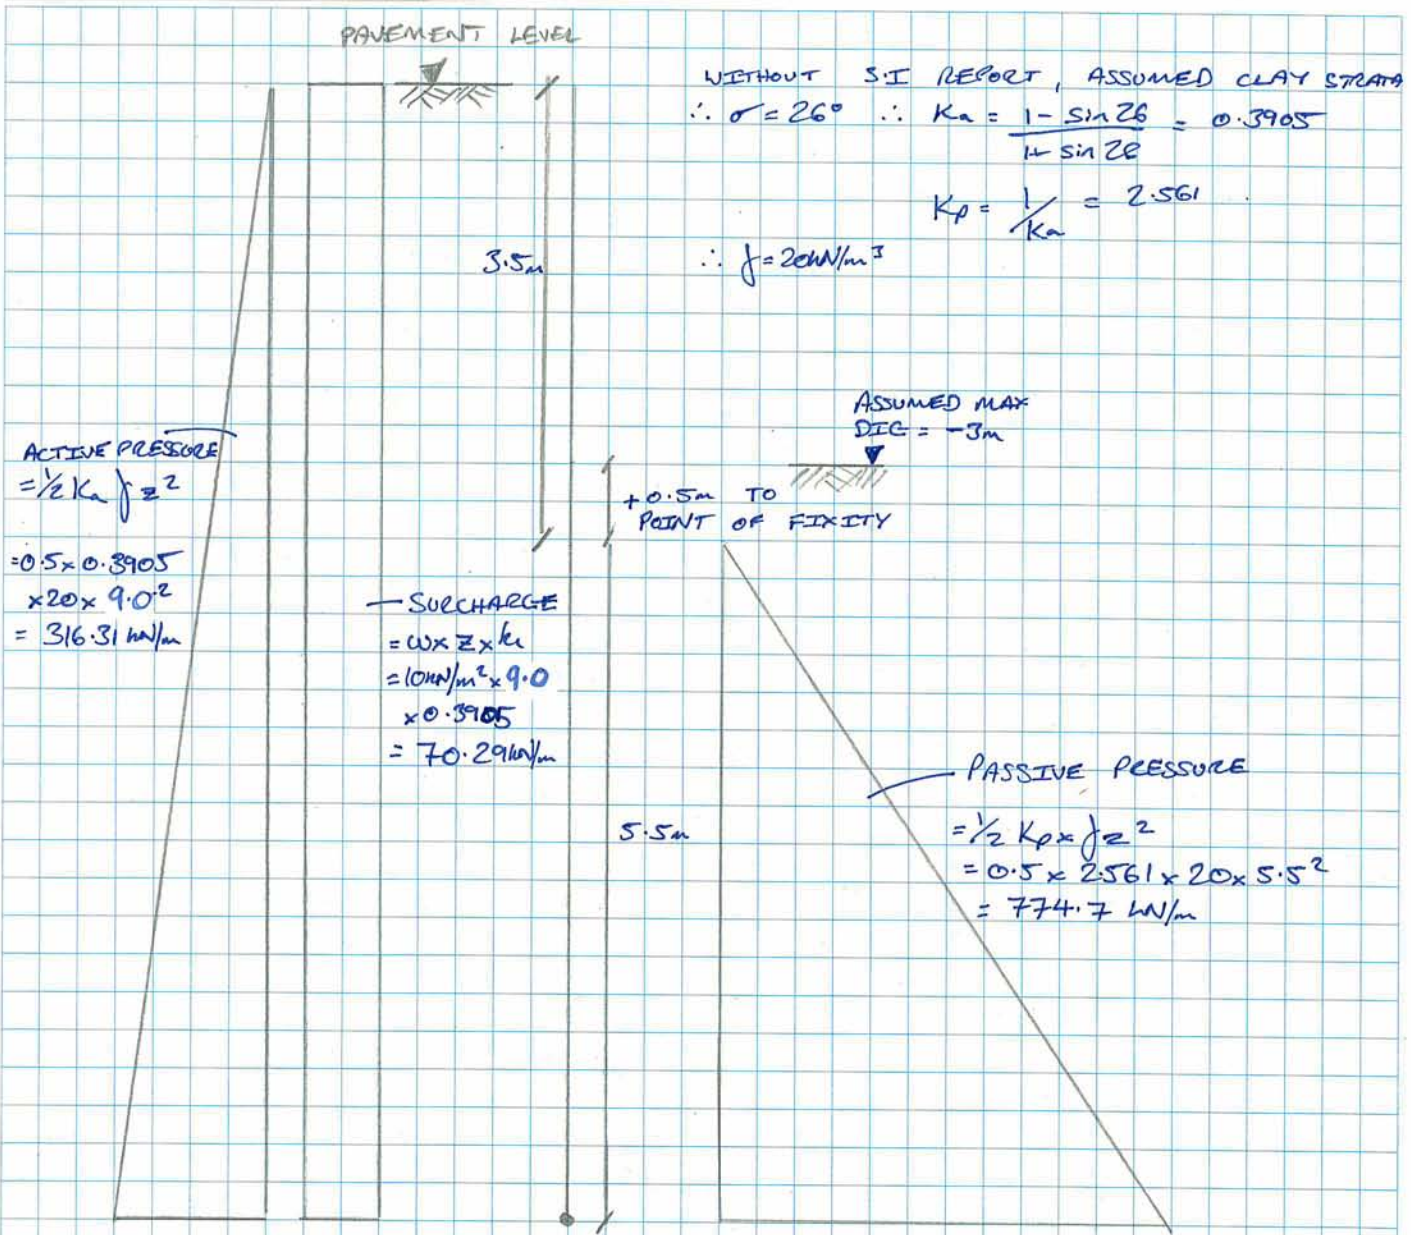 PAVEMENT LEVEL
WITHOUT S.I REPORT, ASSUMED CLAY STRATA
∴ σ = 26° ∴ Ka = 1 - sin 26 / 1 + sin 26 = 0.3905
Kp = 1/Ka = 2.561
∴ γ = 20kN/m³
3.5m
ASSUMED MAX
DIG = -3m
+0.5m TO
POINT OF FIXITY
ACTIVE PRESSURE
= ½ Ka γ z²
= 0.5 x 0.3905
x 20 x 9.0²
= 316.31 kN/m
SURCHARGE
= ω x z x ka
= 10kN/m² x 9.0
x 0.3905
= 70.29kN/m
5.5m
PASSIVE PRESSURE
= ½ Kp x γ z²
= 0.5 x 2.561 x 20 x 5.5²
= 774.7 kN/m